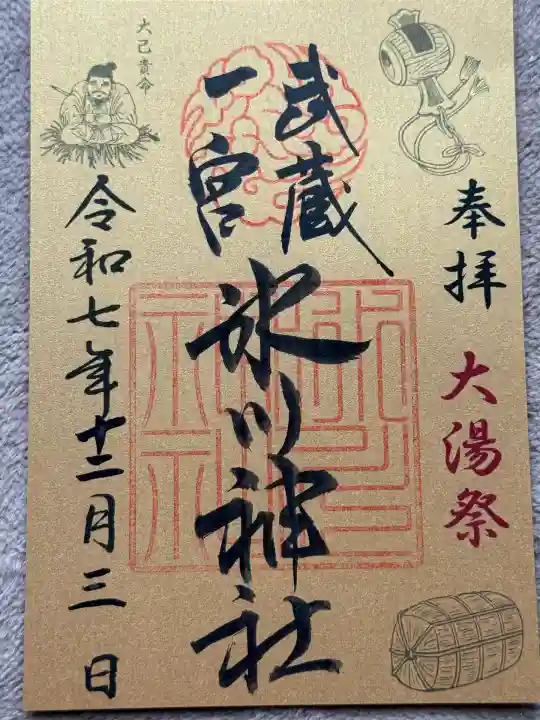 奉拝 大湯祭
武蔵
一宮
氷川神社
大己貴命
令和七年十二月三日